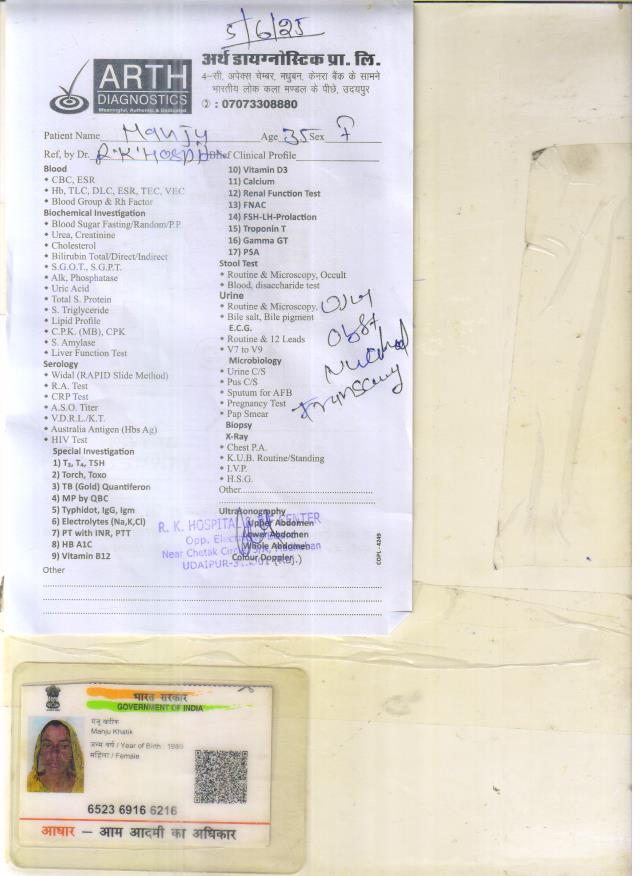 5/6/25
ARTH
DIAGNOSTICS
Meaningful, Authentic & Dedicated
अर्थ डायग्नोस्टिक प्रा. लि.
4–सी, अपेक्स चेम्बर, मधुबन, केनरा बैंक के सामने
भारतीय लोक कला मण्डल के पीछे, उदयपुर
: 07073308880
Patient Name Manju Age 35 Sex F
Ref, by Dr. R.K. HOSP Brief Clinical Profile
Blood
CBC, ESR
Hb, TLC, DLC, ESR, TEC, VEC
Blood Group & Rh Factor
Biochemical Investigation
Blood Sugar Fasting/Random/P.P.
Urea, Creatinine
Cholesterol
Bilirubin Total/Direct/Indirect
S.G.O.T., S.G.P.T.
Alk, Phosphatase
Uric Acid
Total S. Protein
S. Triglyceride
Lipid Profile
C.P.K. (MB), CPK
S. Amylase
Liver Function Test
Serology
Widal (RAPID Slide Method)
R.A. Test
CRP Test
A.S.O. Titer
V.D.R.L./K.T.
Australia Antigen (Hbs Ag)
HIV Test
Special Investigation
1) T₃, T₄, TSH
2) Torch, Toxo
3) TB (Gold) Quantiferon
4) MP by QBC
5) Typhidot, IgG, Igm
6) Electrolytes (Na,K,Cl)
7) PT with INR, PTT
8) HB A1C
9) Vitamin B12
Other
10) Vitamin D3
11) Calcium
12) Renal Function Test
13) FNAC
14) FSH-LH-Prolaction
15) Troponin T
16) Gamma GT
17) PSA
Stool Test
Routine & Microscopy, Occult
Blood, disaccharide test
Urine
Routine & Microscopy,
Bile salt, Bile pigment
E.C.G.
Routine & 12 Leads
V7 to V9
Microbiology
Urine C/S
Pus C/S
Sputum for AFB
Pregnancy Test
Pap Smear
Biopsy
X-Ray
Chest P.A.
K.U.B. Routine/Standing
I.V.P.
H.S.G.
Other
Ultrasonography
Upper Abdomen
Lower Abdomen
Whole Abdomen
Colour Doppler
COPL - 4249
R. K. HOSPITAL CENTER
Opp.
Near Chetak
UDAIPUR (Raj.)
भारत सरकार
GOVERNMENT OF INDIA
मंजू खटीक
Manju Khatik
जन्म वर्ष / Year of Birth : 1989
महिला / Female
6523 6916 6216
आधार – आम आदमी का अधिकार